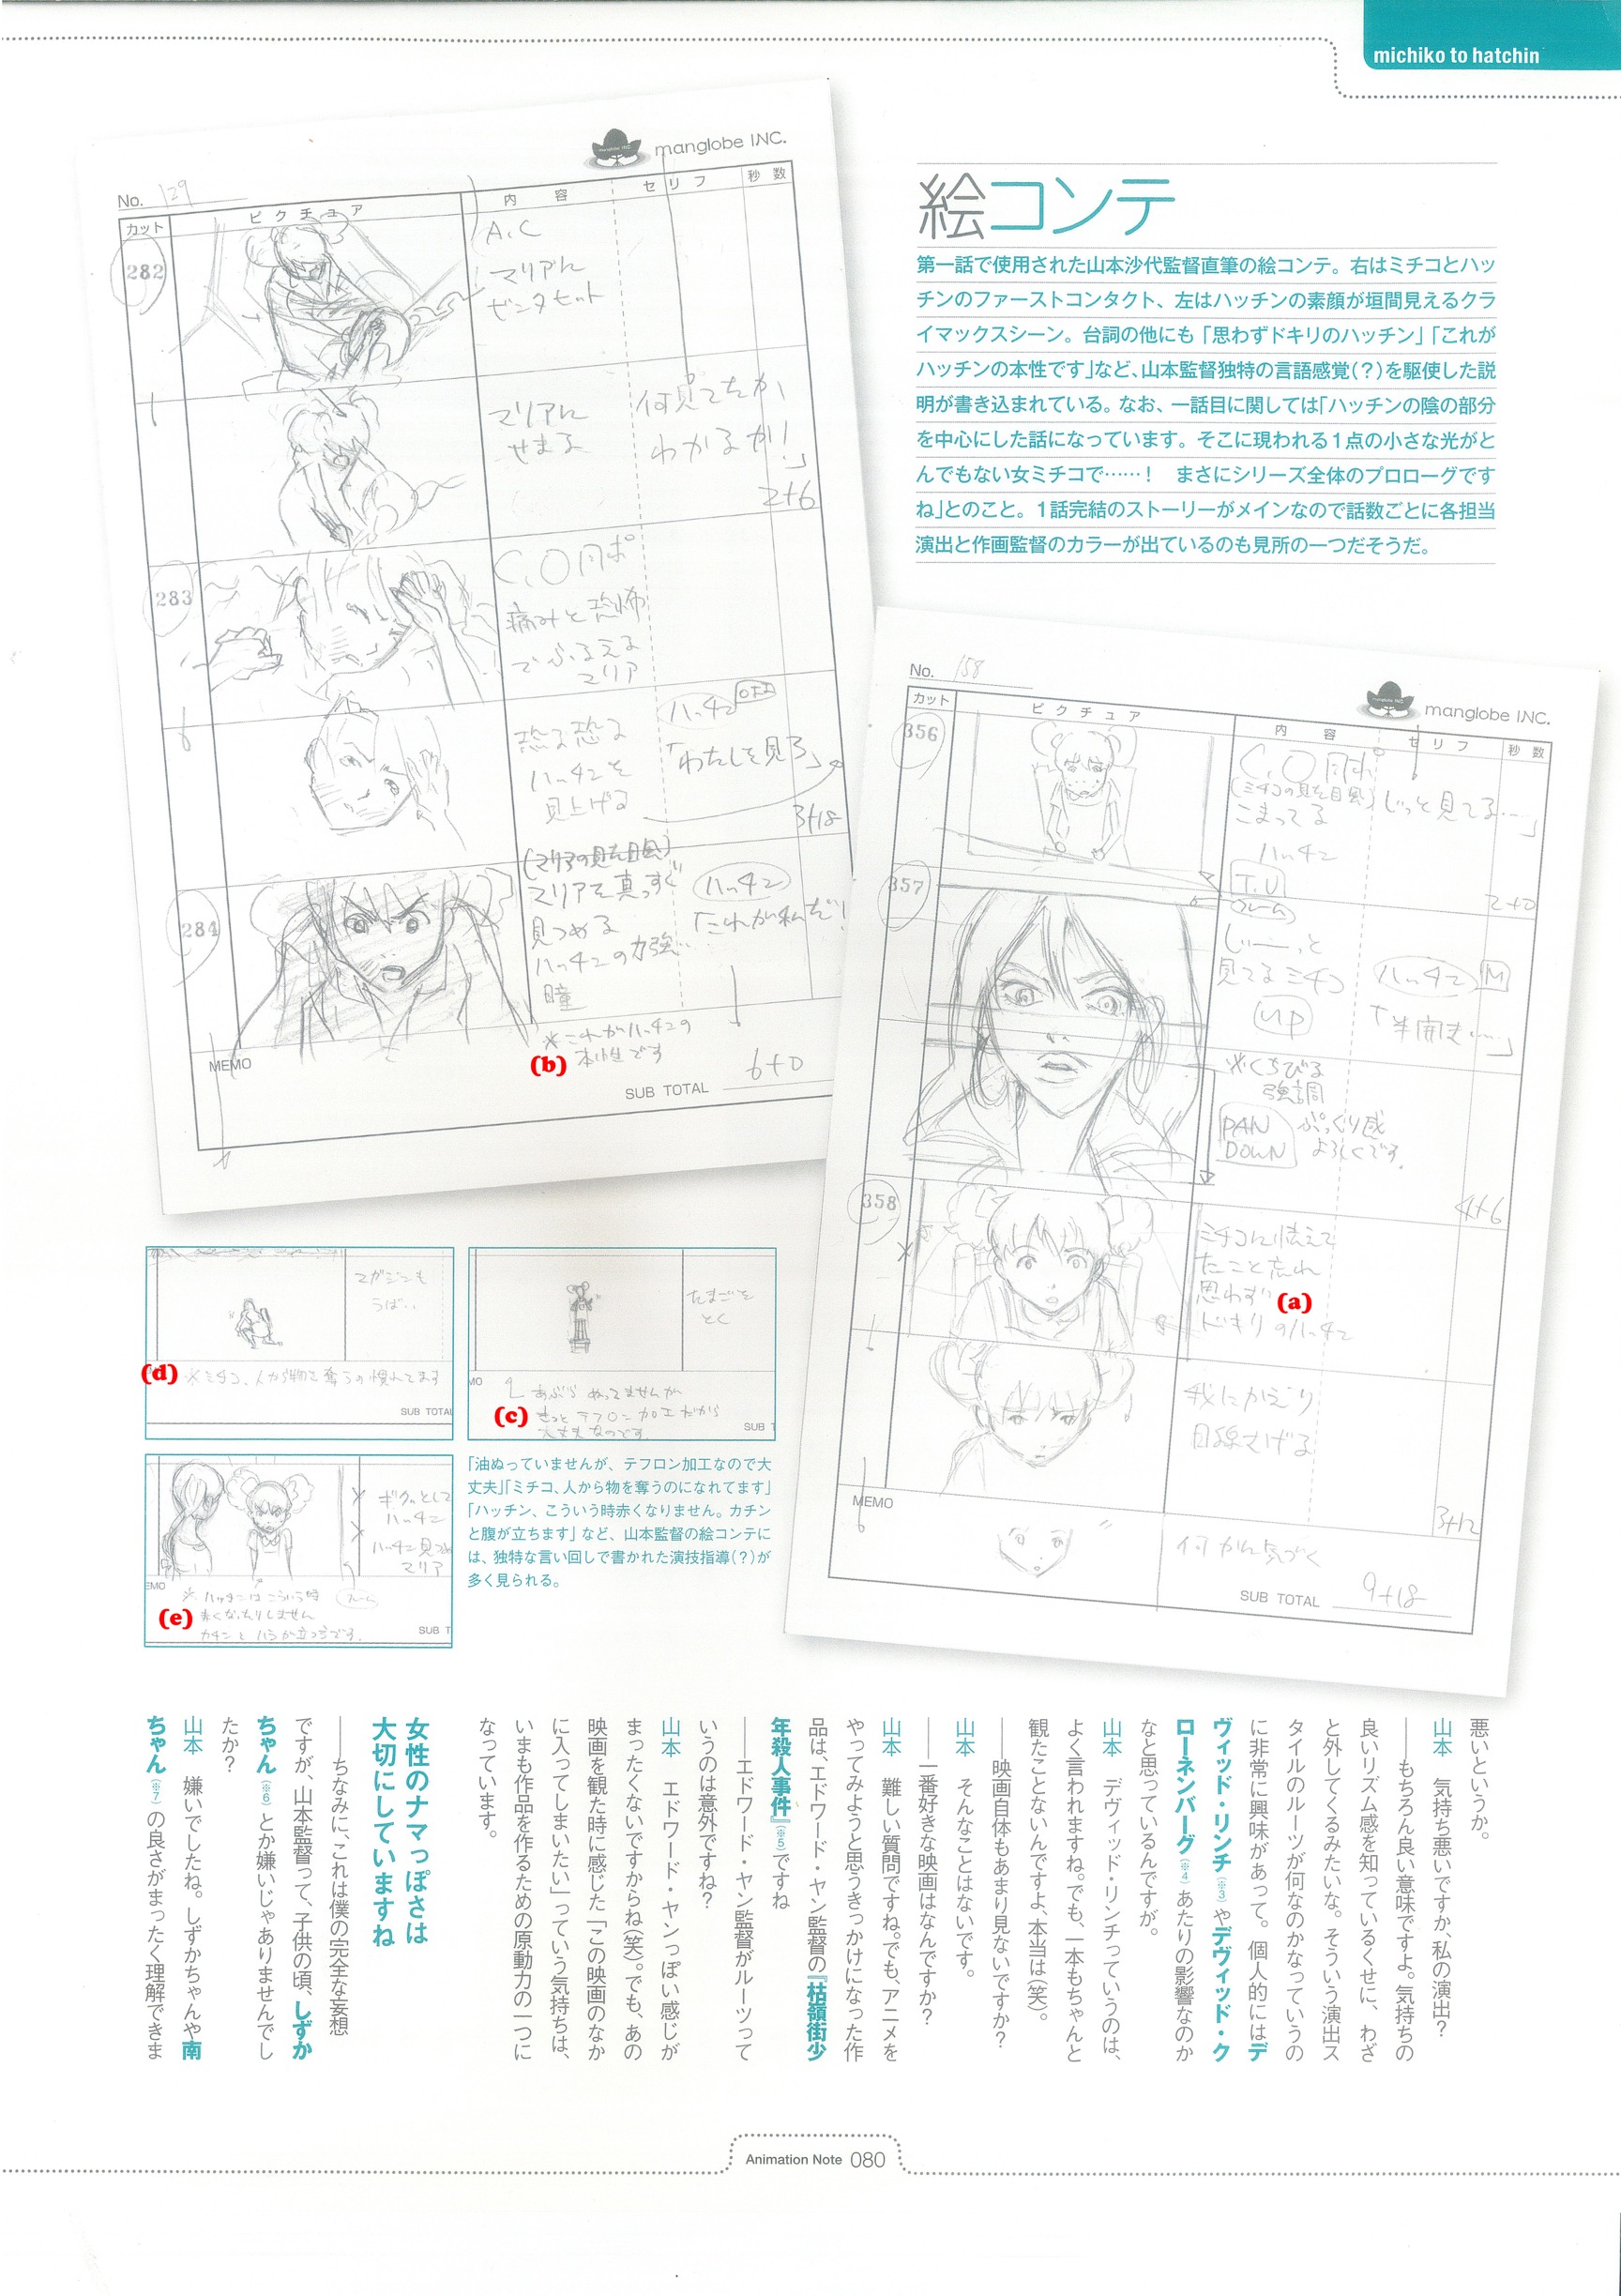 michiko to hatchin
絵コンテ
第一話で使用された山本沙代監督直筆の絵コンテ。右はミチコとハッ
チンのファーストコンタクト、左はハッチンの素顔が垣間見えるクラ
イマックスシーン。台詞の他にも「思わずドキリのハッチン」「これが
ハッチンの本性です」など、山本監督独特の言語感覚(?)を駆使した説
明が書き込まれている。なお、一話目に関しては「ハッチンの陰の部分
を中心にした話になっています。そこに現われる1点の小さな光がと
んでもない女ミチコで……! まさにシリーズ全体のプロローグです
ね」とのこと。1話完結のストーリーがメインなので話数ごとに各担当
演出と作画監督のカラーが出ているのも見所の一つだそうだ。
manglobe INC.
No. 129
カット ピクチュア 内容 セリフ 秒数
282
A.C
マリアに
ゼンタセット
マリアに
せまる
何見てたか
わかるか!」
2+6
283
C.O 同ポ
痛みと恐怖
でふるえる
マリア
恐る恐る
ハッチンを
見上げる
ハッチン OFF
「わたしを見ろ」
3+18
284
(マリアの見た目風)
マリアを真っすぐ
見つめる
ハッチンの力強い
瞳
ハッチン
「これが私だ!
※これがハッチンの
本性です
(b)
MEMO
SUB TOTAL 6+0
No. 158
manglobe INC.
カット ピクチュア 内容 セリフ 秒数
356
C.O 同ポ
(ミチコの見た目風)
こまってる
ハッチン
T.U
じっと見てる…」
2+0
357
フレーム
じぃーーっと
見てるミチコ
UP
ハッチン M
「半開き……」
※くちびる
強調
PAN
DOWN
ぷっくり感
よろしくです。
4+6
358
ミチコに怯えて
たこと忘れ
思わず
ドキリのハッチン
(a)
我にかえり
目線さげる
3+12
MEMO
何かに気づく
SUB TOTAL 9+18
マガジンも
うばう..
(d)
※ミチコ、人から物を奪うの慣れてます
SUB TOTAL
たまごを
とく
MO
あぶら ぬってませんが
(c)
きっと テフロン加工だから
大丈夫なのです。
SUB T
ギクッとして
ハッチン
ハッチン見つめ
マリア
EMO
※ハッチンはこういう時
フレーム
赤くなったりしません
(e)
カチンとハラが立つ子です。
SUB T
「油ぬっていませんが、テフロン加工なので大
丈夫」「ミチコ、人から物を奪うのになれてます」
「ハッチン、こういう時赤くなりません。カチン
と腹が立ちます」など、山本監督の絵コンテに
は、独特な言い回しで書かれた演技指導(?)が
多く見られる。
悪いというか。
山本 気持ち悪いですか、私の演出?
——もちろん良い意味ですよ。気持ちの
良いリズム感を知っているくせに、わざ
と外してくるみたいな。そういう演出ス
タイルのルーツが何なのかなっていうの
に非常に興味があって。個人的にはデ
ヴィッド・リンチ(※3)やデヴィッド・ク
ローネンバーグ(※4)あたりの影響なのか
なと思っているんですが。
山本 デヴィッド・リンチっていうのは、
よく言われますね。でも、一本もちゃんと
観たことないんですよ、本当は(笑)。
——映画自体もあまり見ないですか?
山本 そんなことはないです。
——一番好きな映画はなんですか?
山本 難しい質問ですね。でも、アニメを
やってみようと思うきっかけになった作
品は、エドワード・ヤン監督の『牯嶺街少
年殺人事件』(※5)ですね
——エドワード・ヤン監督がルーツって
いうのは意外ですね?
山本 エドワード・ヤンっぽい感じが
まったくないですからね(笑)。でも、あの
映画を観た時に感じた「この映画のなか
に入ってしまいたい」っていう気持ちは、
いまも作品を作るための原動力の一つに
なっています。
女性のナマっぽさは
大切にしていますね
——ちなみに、これは僕の完全な妄想
ですが、山本監督って、子供の頃、しずか
ちゃん(※6)とか嫌いじゃありませんでし
たか?
山本 嫌いでしたね。しずかちゃんや南
ちゃん(※7)の良さがまったく理解できま
Animation Note 080